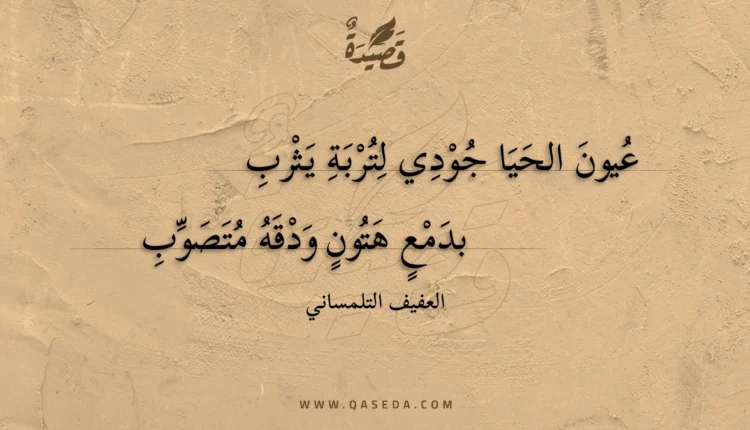 قَصِيدَةٌ
عُيونَ الحَيَا جُوْدِي لِتُرْبَةِ يَثْرِبِ
بدَمْعٍ هَتُونٍ وَدْقَهُ مُتَصَوِّبِ
العفيف التلمساني
WWW.QASEDA.COM